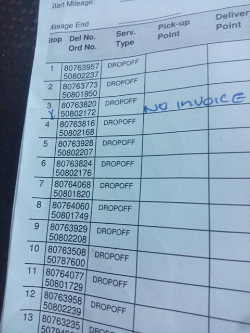 Start Mileage:
Mileage End
Stop Del No. Ord No. Serv. Type Pick-up Point Deliver Point
1 80763957 50802237 DROPOFF
2 80763773 50801950 DROPOFF
3 80763820 50802172 DROPOFF NO INVOICE
4 80763816 50802168 DROPOFF
5 80763928 50802207 DROPOFF
6 80763824 50802176 DROPOFF
7 80764068 50801820 DROPOFF
8 80764060 50801749 DROPOFF
9 80763929 50802208 DROPOFF
10 80763508 50787600 DROPOFF
11 80764077 50801729 DROPOFF
12 80763958 50802239 DROPOFF
13 80763235 DROPOFF